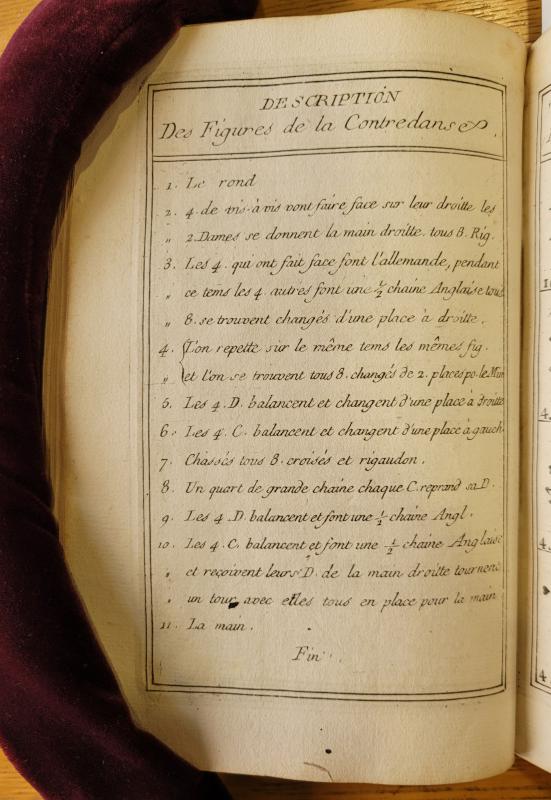 DESCRIPTION
Des Figures de la Contredanse
1. Le rond
2. 4. de vis-à-vis vont faire face sur leur droitte les
" 2. Dames se donnent la main droitte. tous 8. Rig.
3. Les 4. qui ont fait face font l'allemande, pendant
" ce tems les 4. autres font une ½ chaine Anglaise tous
" 8. se trouvent changés d'une place à droitte.
4. L'on repette sur le même tems les mêmes fig.
" et l'on se trouvent tous 8. changés de 2. places po. le
5. Les 4. D. balancent et changent d'une place à droitte
6. Les 4. C. balancent et changent d'une place à gauch
7. Chassés tous 8. croisés et rigaudon.
8. Un quart de grande chaine chaque C. reprand sa D.
9. Les 4. D. balancent et font une ½ chaine Angl.
10. Les 4. C. balancent et font une ½ chaine Anglaise
" et reçoivent leurs D. de la main droitte tournent
" un tour avec elles tous en place pour la main
11. La main.
Fin.